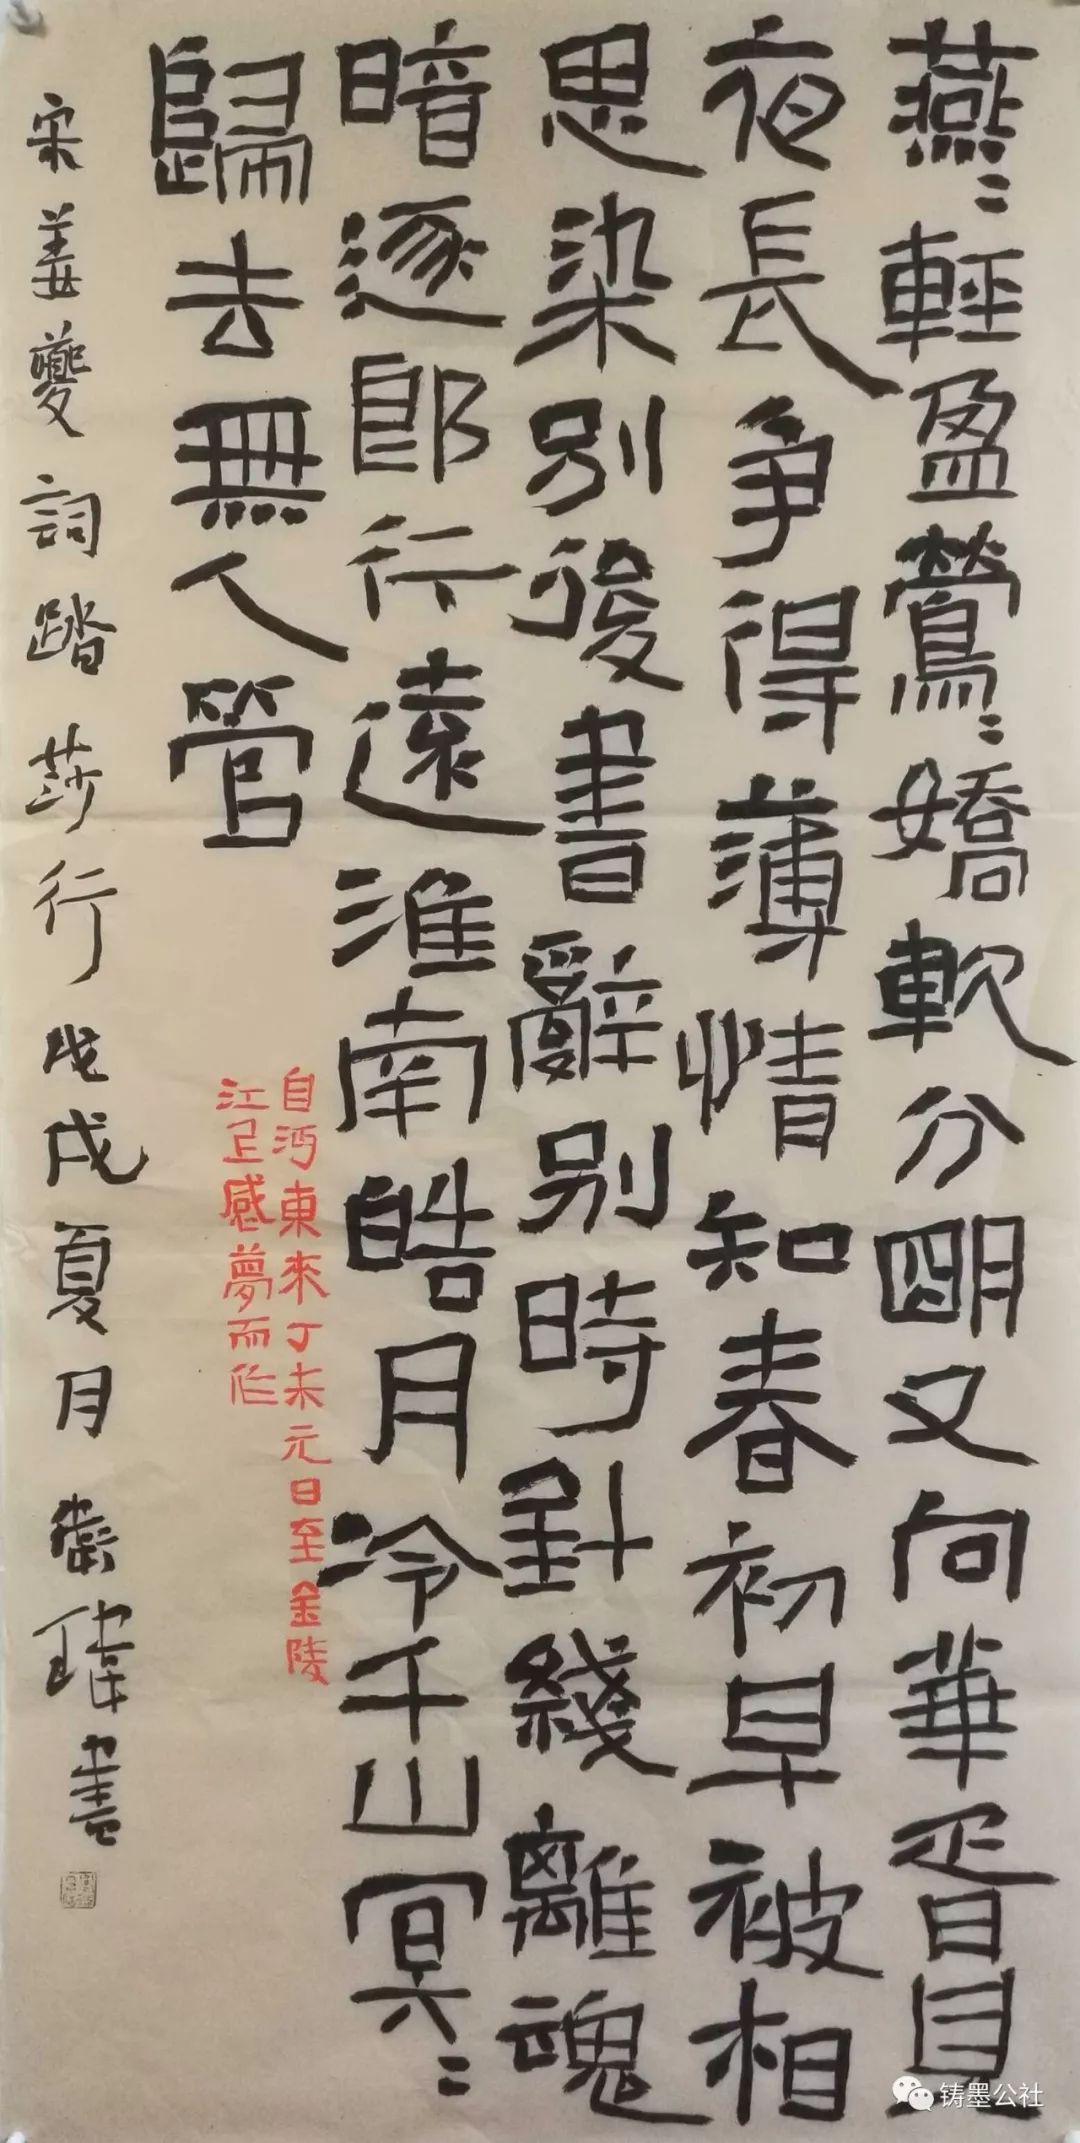 燕〻輕盈鶯〻嬌軟分朙又向華胥見
夜長爭得薄情知春初早被相
思染別後書辭別時針綫離魂
暗逐郎行遠淮南皓月冷千山冥〻
歸去無人管
自沔東來丁未元日至金陵
江上感夢而作
宋姜夔詞踏莎行戊戌夏月衛瑋書
铸墨公社